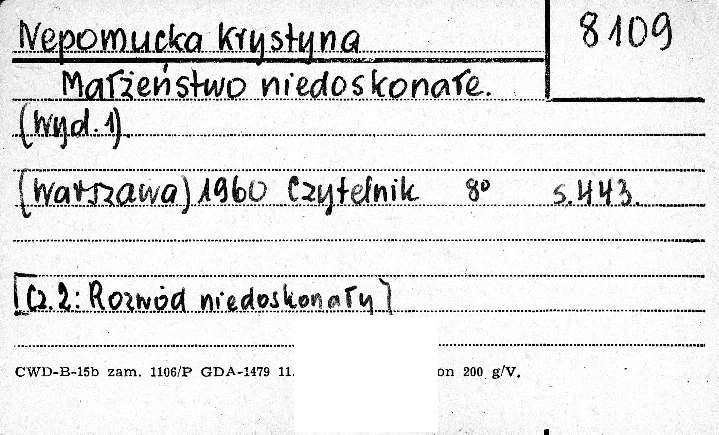 Nepomucka Krystyna
8109
Małżeństwo niedoskonałe.
(Wyd. 1).
(Warszawa) 1960 Czytelnik 8° s. 443.
[Cz. 2: Rozwód niedoskonały]
CWD-B-15b zam. 1106/P GDA-1479 11. on 200 g/V.